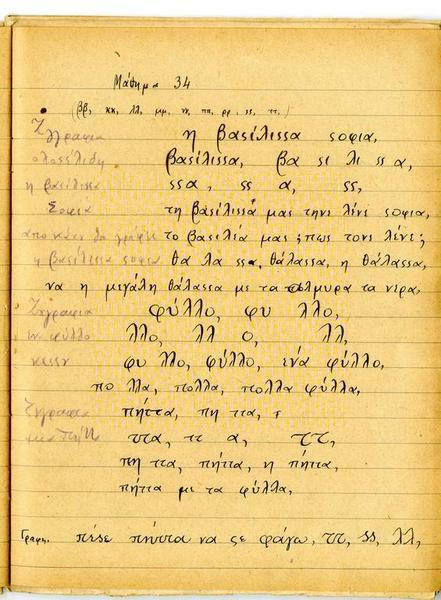 Μάθημα 34
(ββ, κκ, λλ, μμ, νν, ππ, ρρ, ss, ττ.)
Ζγραφια η βασίλισσα σοφια,
ολοσέλιδη βασίλισσα, βα σι λι σσ α,
η βασίλισσα σσα, σσ α, σσ,
Σοφια τη βασίλισσά μας τηνε λένε σοφια,
απο κατω θα γράψετε το βασιλιά μας ; πως τονε λένε ;
η βασίλισσα σοφια θα λα σσα, θάλασσα, η θάλασσα,
να η μεγάλη θάλασσα με τα αλμυρα τα νερα,
Ζγραφια φύλλο, φυ λλο,
φύλλο λλο, λλ ο, λλ,
φυ λλο, φύλλο, ενα φύλλο,
πο λλα, πολλα, πολλα φύλλα,
Ζγραφια πήττα, πη ττα,
μια πήττα ττα, ττ α, ττ,
πη ττα, πήττα, η πήττα,
πήττα με τα φύλλα,
Γραφη. πέσε πήττα να σε φάγω, ττ, σσ, λλ,